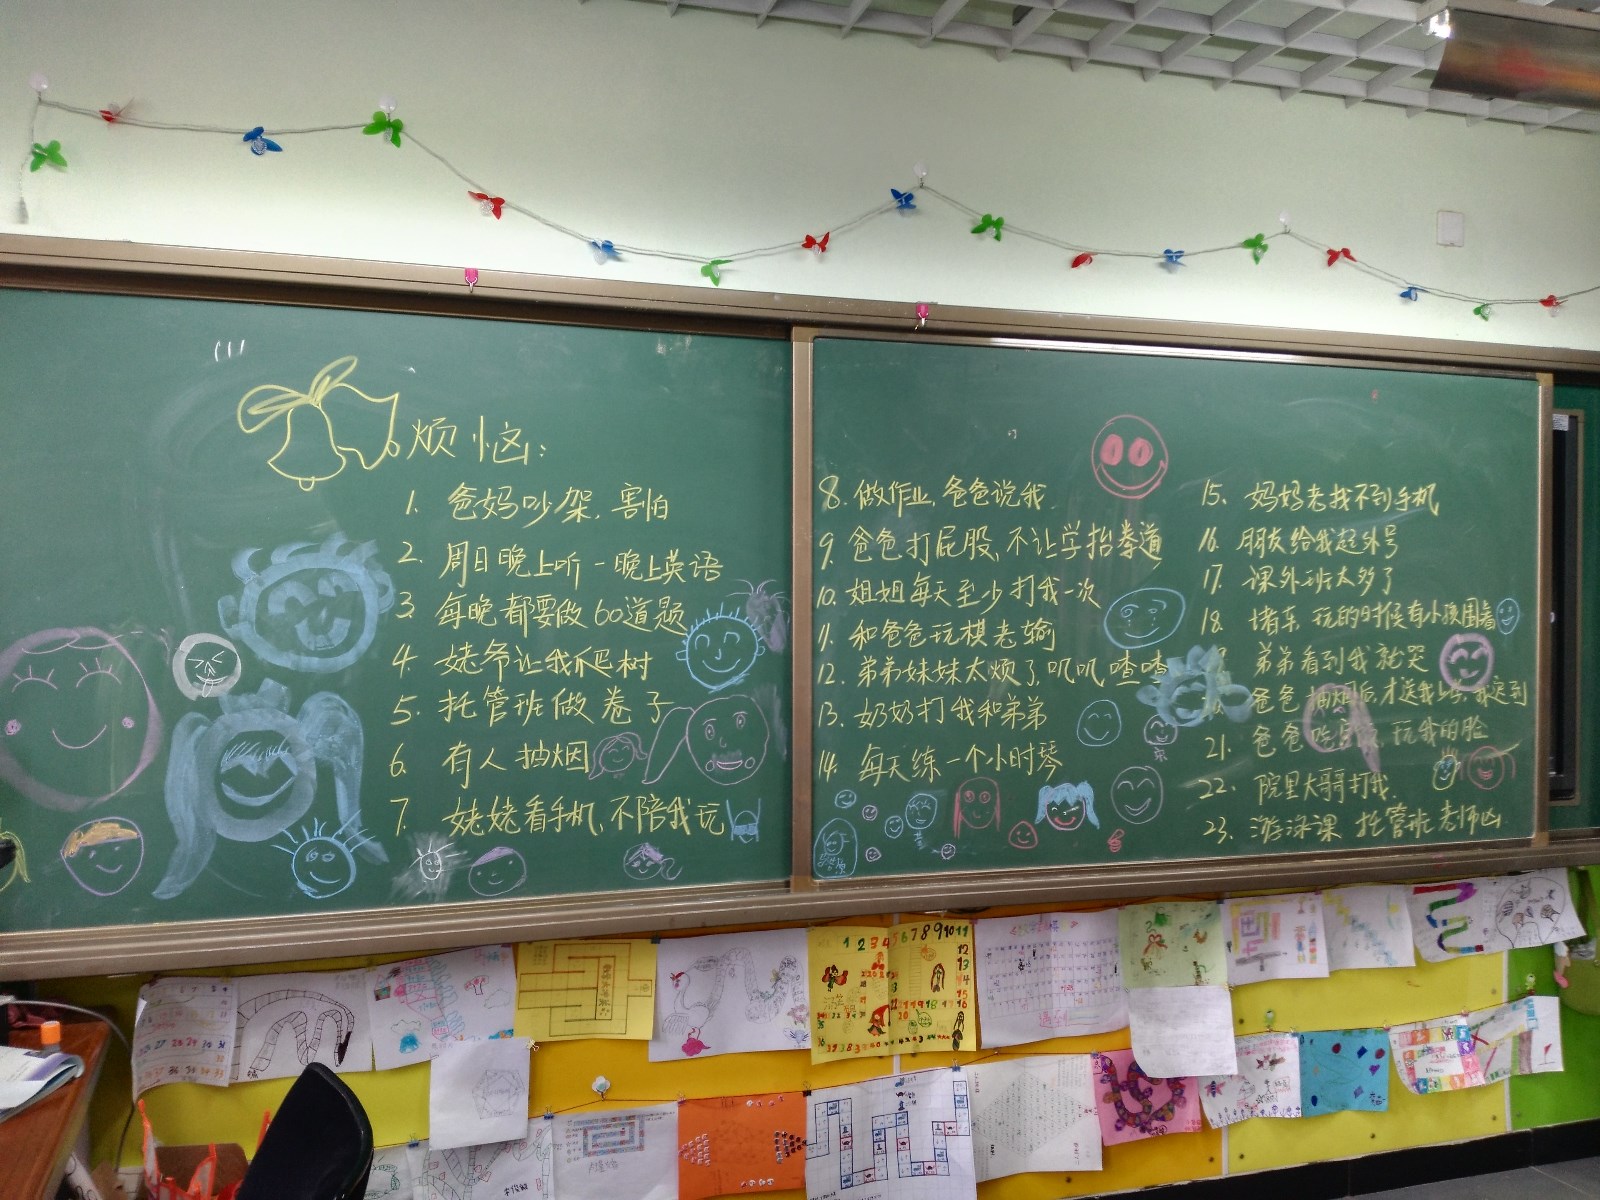 烦恼:
1. 爸妈吵架、害怕
2. 周日晚上听一晚上英语
3. 每晚都要做60道题
4. 姥爷让我爬树
5. 托管班做卷子
6. 有人抽烟
7. 姥姥看手机、不陪我玩
8. 做作业,爸爸说我.
9. 爸爸打屁股、不让学抬拳道
10. 姐姐每天至少打我一次
11. 和爸爸玩棋老输
12. 弟弟妹妹太烦了,叽叽喳喳
13. 奶奶打我和弟弟
14. 每天练一个小时琴
15. 妈妈老找不到手机
16. 朋友给我起外号
17. 课外班太多了
18. 堵车、玩的时候有小孩围着
弟弟看到我就哭
爸爸抽烟后,才送我上学,我迟到
21. 爸爸 玩我的脸
22. 院里大哥打我.
23. 游泳课 托管班老师凶
1 2 3 4 5 6 7 8 9 10 11
12
13
14
15
16